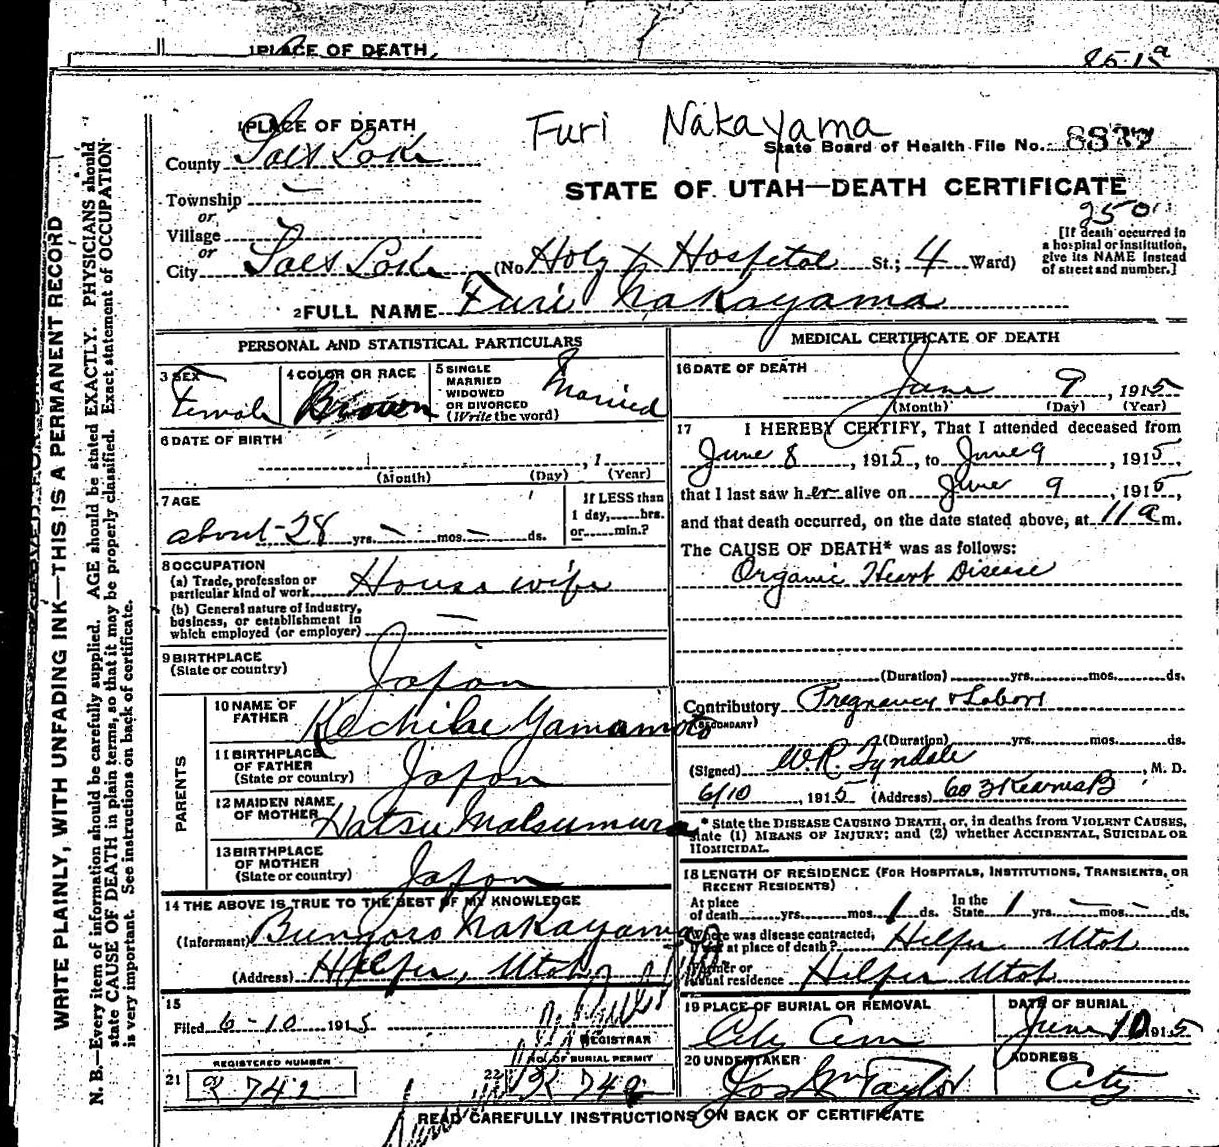 1 PLACE OF DEATH
1 PLACE OF DEATH
Furi Nakayama
County Salt Lake
State Board of Health File No.
Township —
STATE OF UTAH—DEATH CERTIFICATE
or
Village
or
City Salt Lake (No. Holy X Hospital St.; 4 Ward)
[If death occurred in a hospital or institution, give its NAME instead of street and number.]
2 FULL NAME Furi Nakayama
PERSONAL AND STATISTICAL PARTICULARS
3 SEX Female
4 COLOR OR RACE Brown
5 SINGLE MARRIED WIDOWED OR DIVORCED (Write the word) Married
6 DATE OF BIRTH
, 1
(Month) (Day) (Year)
7 AGE
about 28 yrs. — mos. — ds.
If LESS than 1 day, hrs. or min.?
8 OCCUPATION
(a) Trade, profession or particular kind of work House wife
(b) General nature of industry, business, or establishment in which employed (or employer) —
9 BIRTHPLACE (State or country) Japan
PARENTS
10 NAME OF FATHER Yamamoto
11 BIRTHPLACE OF FATHER (State or country) Japan
12 MAIDEN NAME OF MOTHER Hatsu Matsumura
13 BIRTHPLACE OF MOTHER (State or country) Japan
14 THE ABOVE IS TRUE TO THE BEST OF MY KNOWLEDGE
(Informant) Bungoro Nakayama
(Address) Helper, Utah
15
Filed 6-10 1915
REGISTRAR
REGISTERED NUMBER
21 742
NO. OF BURIAL PERMIT
22
MEDICAL CERTIFICATE OF DEATH
16 DATE OF DEATH
June 9, 1915
(Month) (Day) (Year)
17 I HEREBY CERTIFY, That I attended deceased from
June 8, 1915, to June 9, 1915,
that I last saw her alive on June 9, 1915,
and that death occurred, on the date stated above, at 11 a m.
The CAUSE OF DEATH* was as follows:
Organic Heart Disease
(Duration) yrs. mos. ds.
Contributory Pregnancy & Labor
(SECONDARY)
(Duration) yrs. mos. ds.
(Signed) W.R. Tyndale, M. D.
6/10, 1915 (Address) 603 Kearns B
* State the DISEASE CAUSING DEATH, or, in deaths from VIOLENT CAUSES,
state (1) MEANS OF INJURY; and (2) whether ACCIDENTAL, SUICIDAL OR
HOMICIDAL.
18 LENGTH OF RESIDENCE (FOR HOSPITALS, INSTITUTIONS, TRANSIENTS, OR
RECENT RESIDENTS)
At place of death yrs. mos. 1 ds. In the State 1 yrs. — mos. — ds.
Where was disease contracted, if not at place of death? Helper Utah
Former or usual residence Helper Utah
19 PLACE OF BURIAL OR REMOVAL
City Cem
DATE OF BURIAL
June 10 1915
20 UNDERTAKER
Jos Wm Taylor
ADDRESS
City
READ CAREFULLY INSTRUCTIONS ON BACK OF CERTIFICATE
WRITE PLAINLY, WITH UNFADING INK—THIS IS A PERMANENT RECORD
N. B.—Every item of information should be carefully supplied. AGE should be stated EXACTLY. PHYSICIANS should
state CAUSE OF DEATH in plain terms, so that it may be properly classified. Exact statement of OCCUPATION
is very important. See instructions on back of certificate.